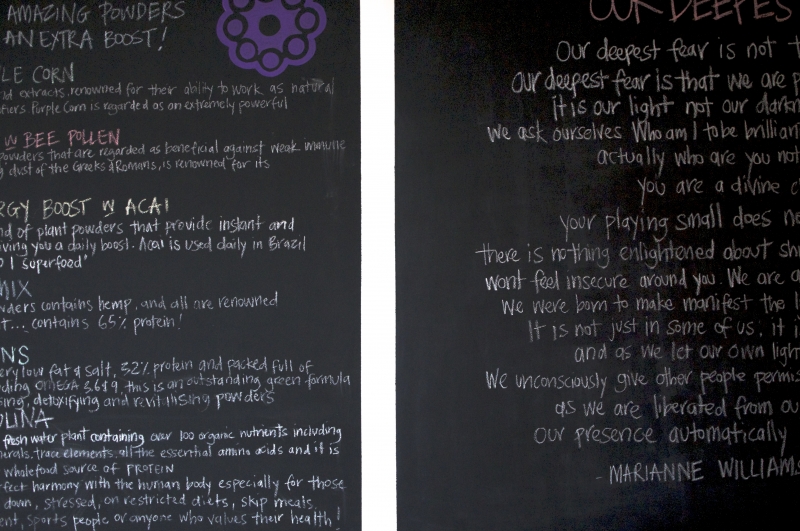 AMAZING POWDERS
AN EXTRA BOOST!
LE CORN
extracts, renowned for their ability to work as natural
tiers Purple Corn is regarded as an extremely powerful
W BEE POLLEN
powders that are regarded as beneficial against weak immune
dust of the Greeks & Romans, is renowned for its
RGY BOOST W ACAI
nd of plant powders that provide instant and
iving you a daily boost. Acai is used daily in Brazil
1 superfood'
MIX
wders contains hemp, and all are renowned
t... contains 65% protein!
NS
ery low fat & salt, 32% protein and packed full of
ding OMEGA 3,6&9, this is an outstanding green formula
sing, detoxifying and revitalising powders
ULINA
fresh water plant containing over 100 organic nutrients including
nerals, trace elements, all the essential amino acids and it is
wholefood source of PROTEIN
fect harmony with the human body especially for those
down, stressed, on restricted diets, skip meals,
ent, sports people or anyone who values their health!
OUR DEEPES
Our deepest fear is not t
our deepest fear is that we are p
it is our light not our darkn
we ask ourselves Who am I to be brillian
actually who are you not
you are a divine c
your playing small does no
there is nothing enlightened about shr
wont feel insecure around you. We are a
We were born to make manifest the l
It is not just in some of us; it i
and as we let our own light
We unconsciously give other people permis
as we are liberated from ou
our presence automatically
- MARIANNE WILLIAMS